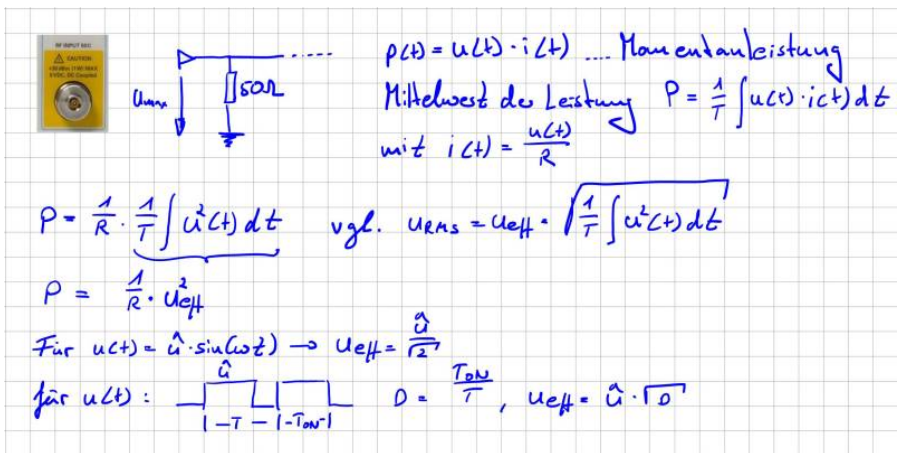 RF INPUT 50Ω
CAUTION
Umax
50Ω
p(t) = u(t) · i(t) .... Momentanleistung
Mittelwert der Leistung P = 1/T ∫ u(t) · i(t) dt
mit i(t) = u(t)/R
P = 1/R · 1/T ∫ u²(t) dt vgl. URMS = Ueff = √(1/T ∫ u²(t) dt)
P = 1/R · U²eff
Für u(t) = û · sin(ωt) → Ueff = û/√2
für u(t): û |-T-|-TON-| D = TON/T , Ueff = û · √D